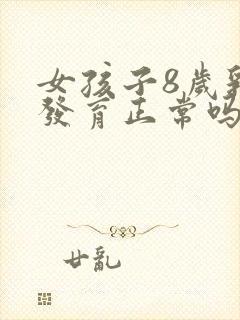 女孩子8歲
發育正常吗
廿亂